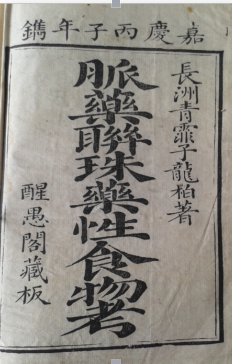 嘉慶丙子年鐫
長洲青霏子龍柏著
脈藥聯珠藥性食物考
醒愚閣藏板